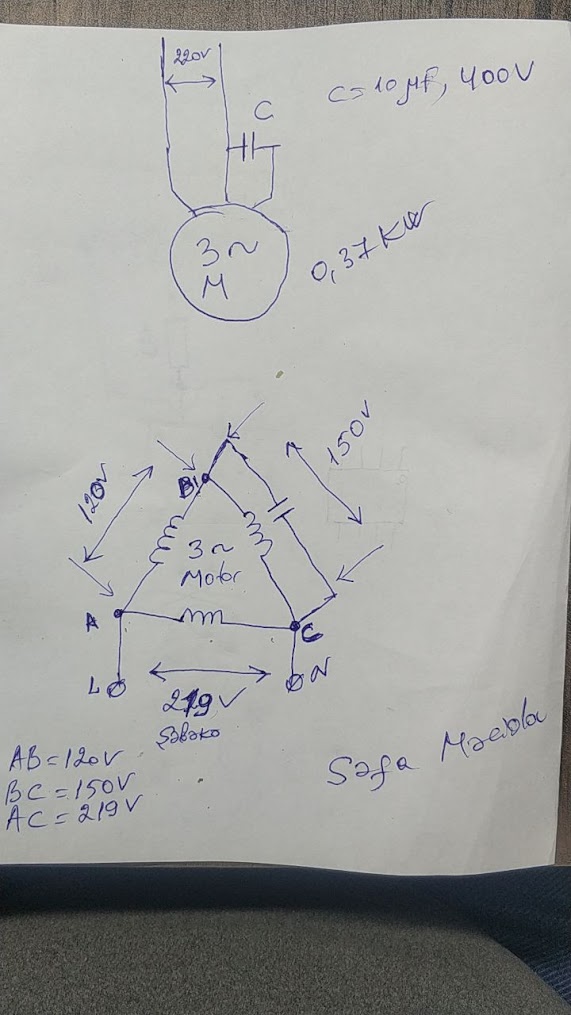 220V
C = 10 μf, 400V
C
3~
M
0,37 KW
150V
120V
B
3~
Motor
A
C
L
N
219V
Şəbəkə
AB = 120V
BC = 150V
AC = 219V
Səfa